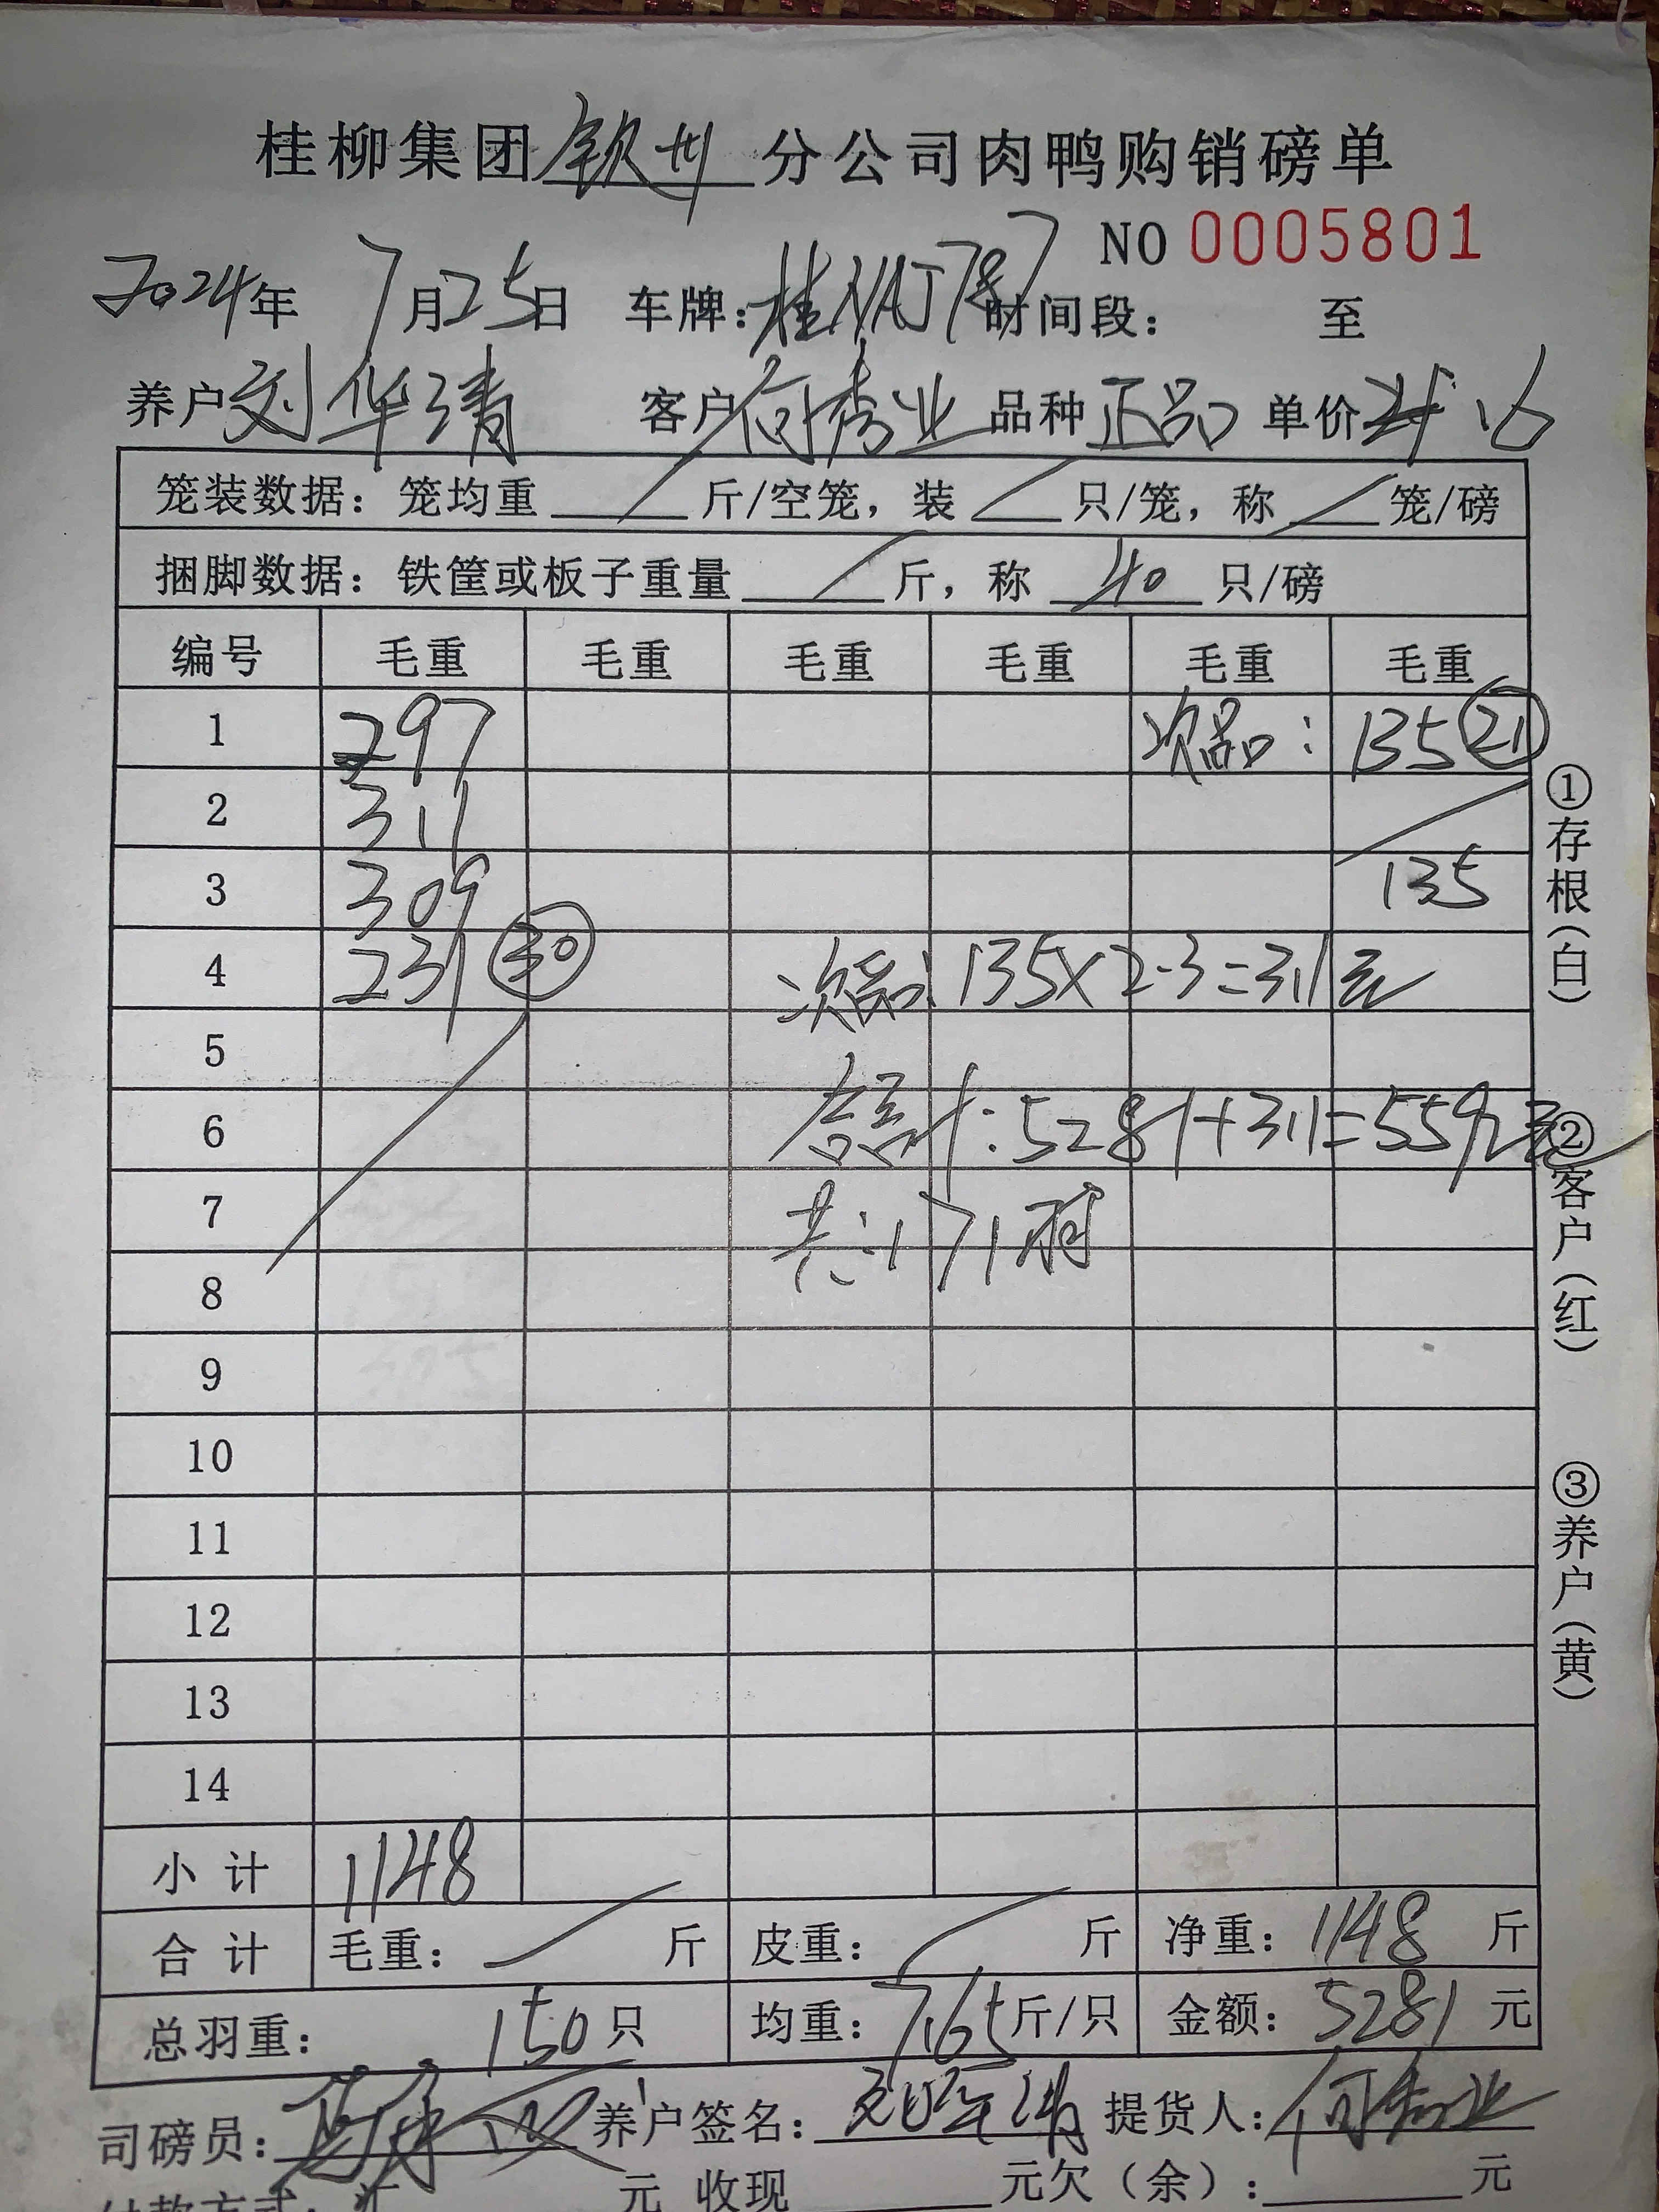 桂柳集团钦州分公司肉鸭购销磅单
NO 0005801
2024年7月25日 车牌:桂NAJ787 时间段: 至
养户刘华清 客户何秀业 品种正品 单价
笼装数据:笼均重 / 斤/空笼,装 / 只/笼,称 / 笼/磅
捆脚数据:铁筐或板子重量 / 斤,称 40 只/磅
编号 毛重 毛重 毛重 毛重 毛重 毛重
1 297 次品: 135 ㉑
2 311
3 309 135
4 231 ㉚ 次品: 135×2.3=311元
5
6 合计:5281+311=5592元
7 共:171羽
8
9
10
11
12
13
14
小计 1148
合计 毛重: / 斤 皮重: / 斤 净重:1148斤
总羽重: 150只 均重:7.65斤/只 金额:5281元
司磅员: 养户签名:刘华清 提货人:何秀业
付款方式:汇 元 收现 元欠(余): 元
①存根(白)
②客户(红)
③养户(黄)